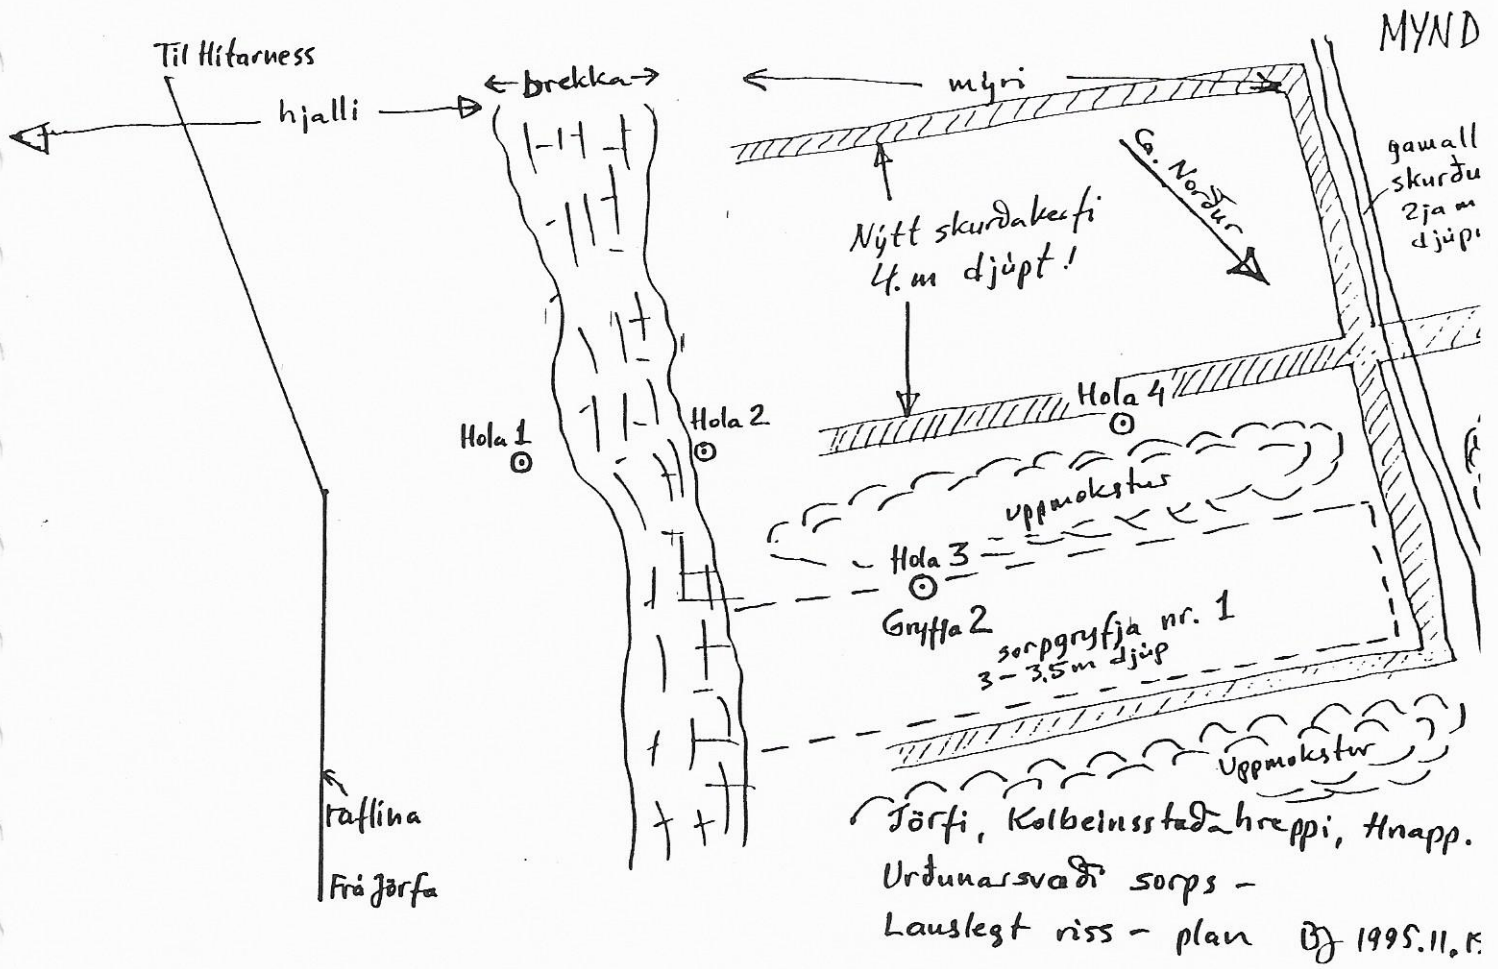 MYND
Til Hítarness
hjalli
brekka
mýri
gamall
skurðu
2ja m
djúp
Ca. Norður
Nýtt skurðakerfi
4. m djúpt!
Hola 1
Hola 2
Hola 4
uppmokstur
Hola 3
Gryfja 2
sorpgryfja nr. 1
3 - 3.5 m djúp
uppmokstur
raflína
Frá Jörfa
Jörfi, Kolbeinsstaðahreppi, Hnapp.
Urðunarsvæði sorps -
Lauslegt riss - plan BJ 1995.11.